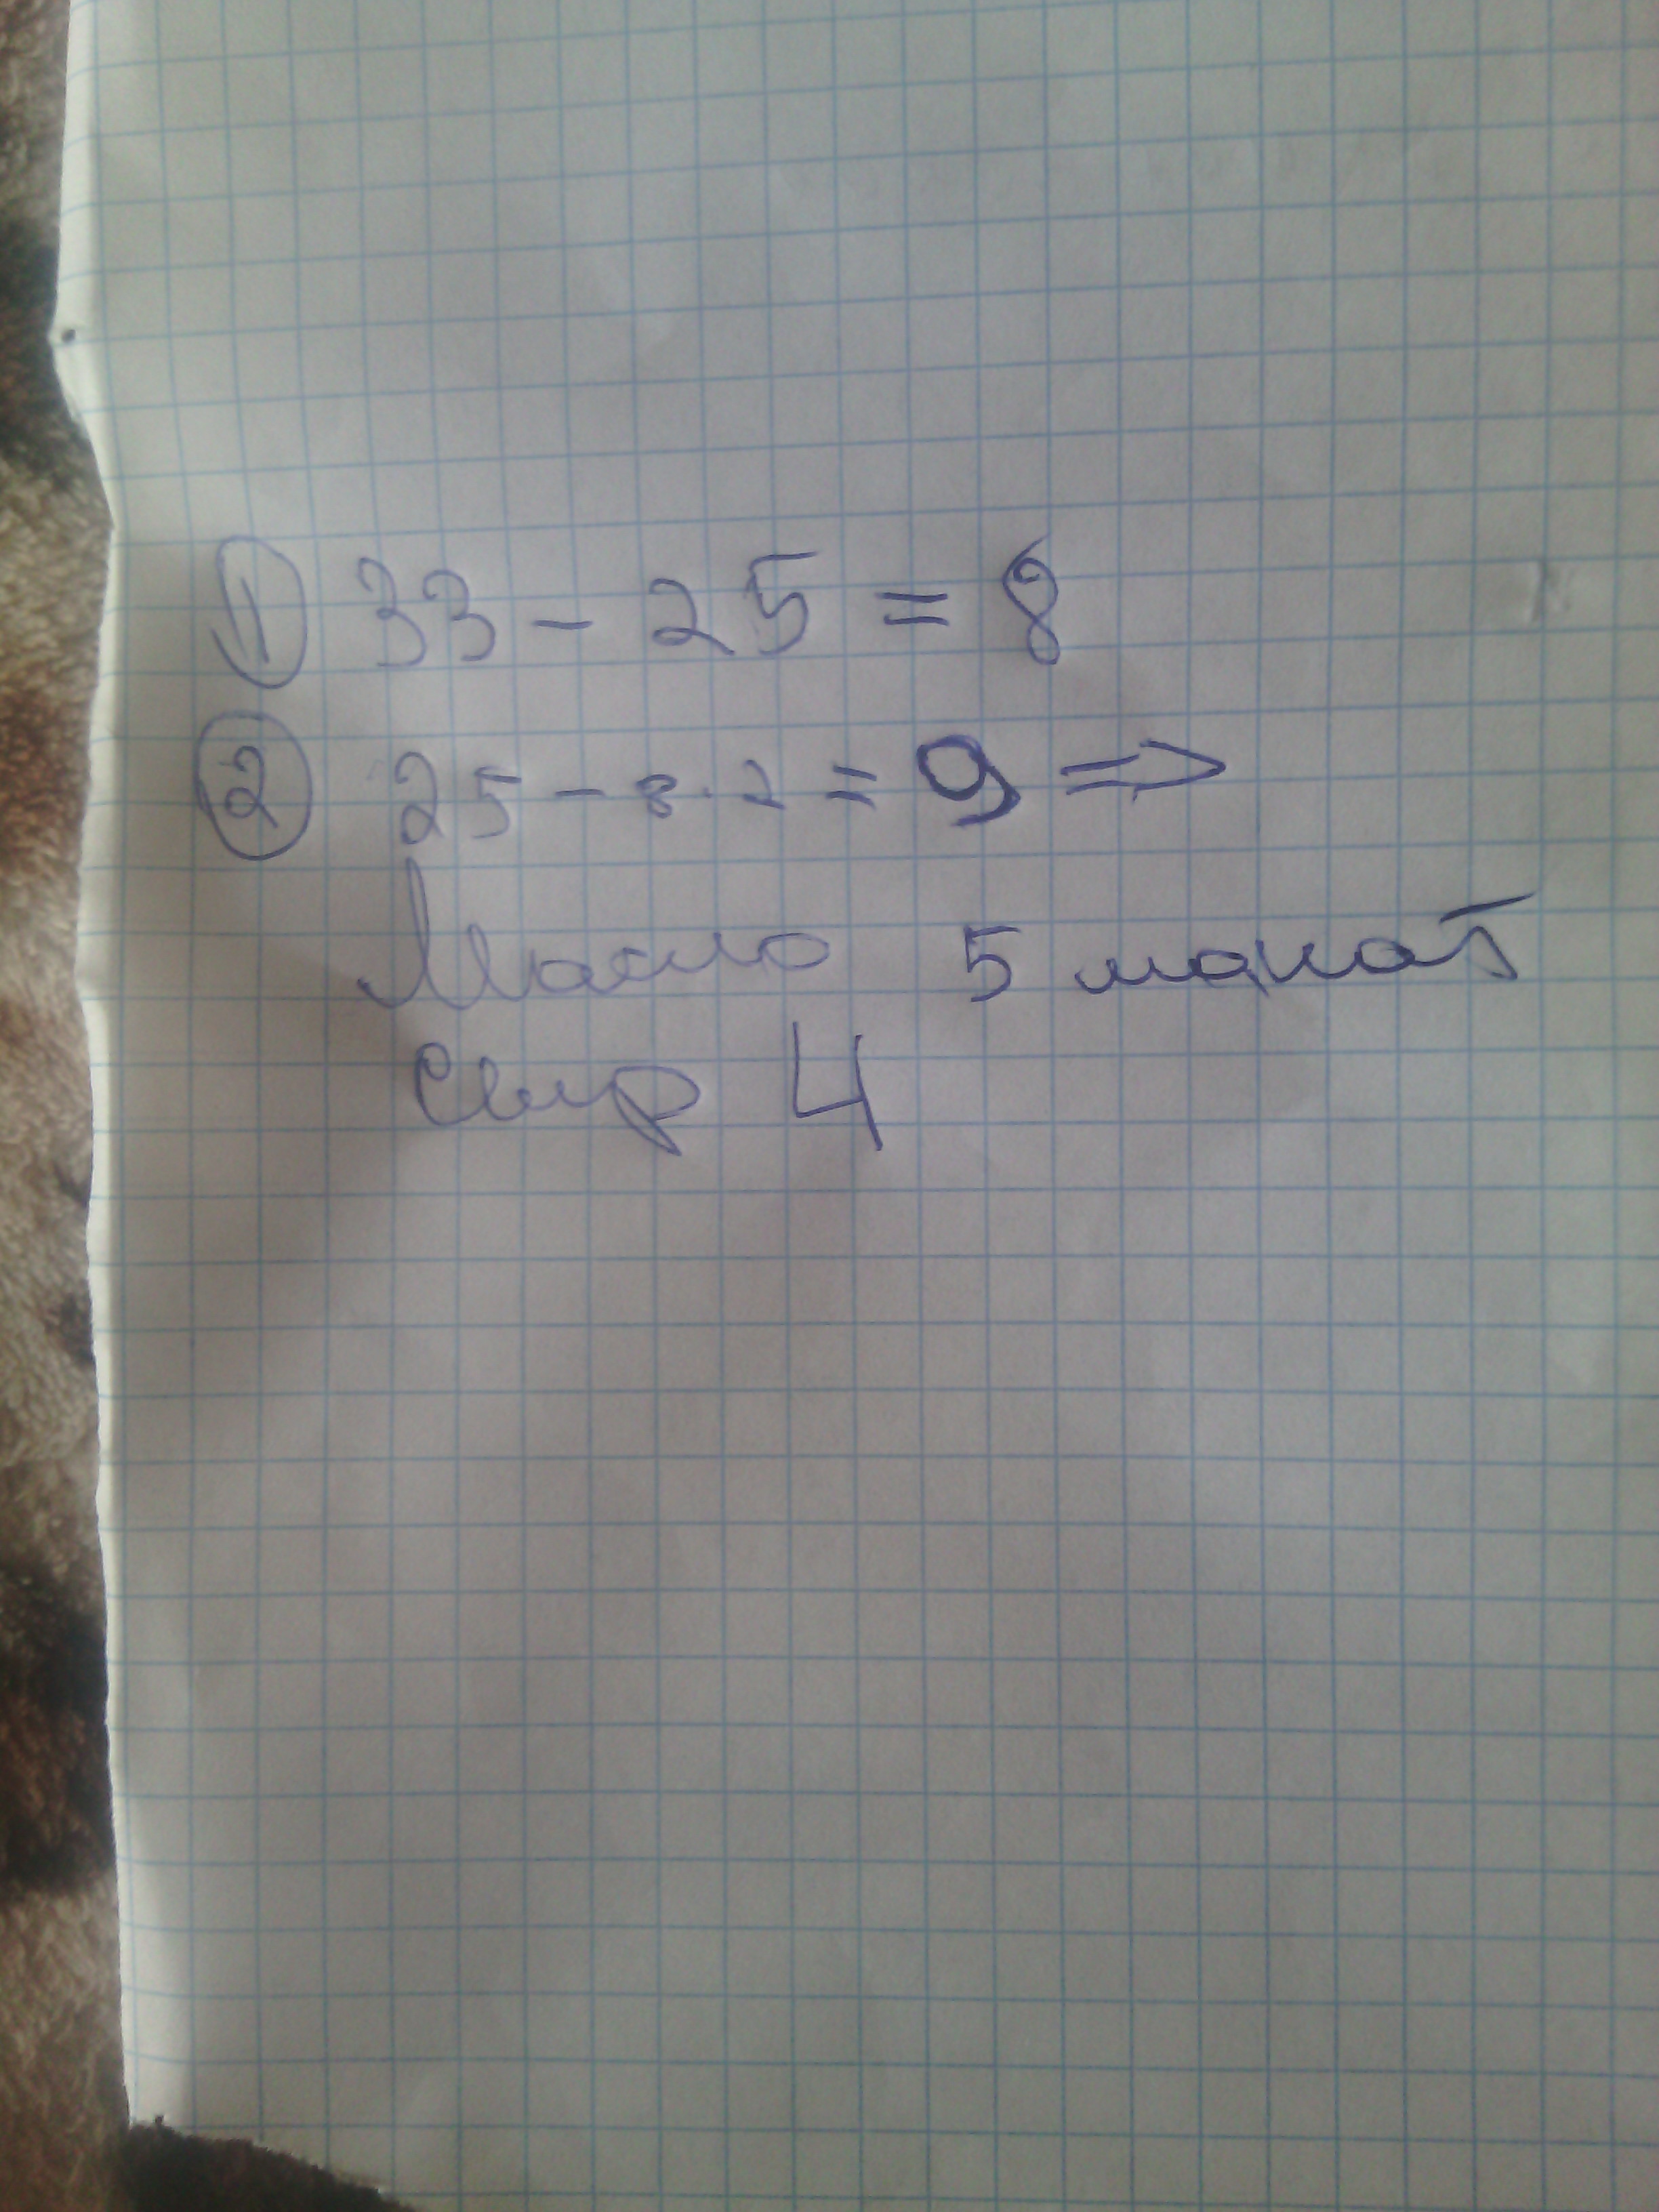 ① 33 - 25 = 8
② 25 - 8 · 2 = 9 ⇒
Масло 5 манат
сыр 4